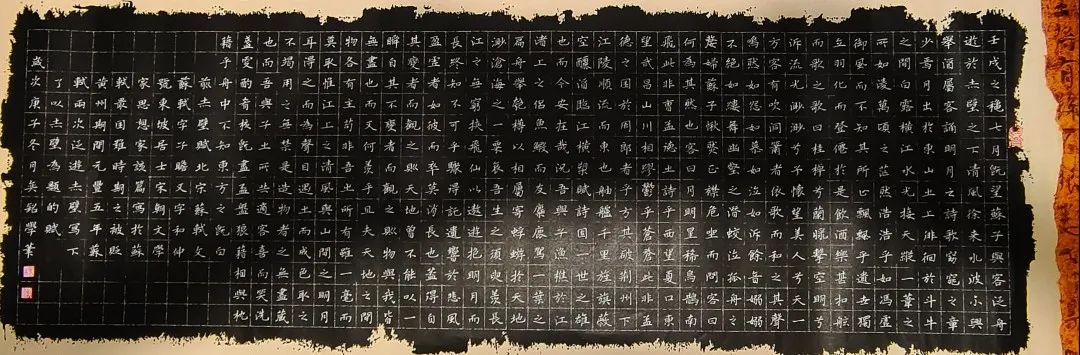 壬戌之穐七月既望蘇子與客泛舟
遊於赤壁之下清風徐来水波不興
舉酒屬客誦明月之詩歌窈窕之章
少焉月出於東山之上徘徊於斗牛
之間白露横江水光接天縱一葦之
所如凌萬頃之茫然浩浩乎如馮虛
御風而不知其所止飄飄乎遺世獨
立羽化而登僊於是飲酒樂甚扣舷
而歌之歌曰桂棹兮蘭槳擊空明兮
泝流光渺渺兮予懷望美人兮天一
方客有吹洞簫者倚歌而和之其聲
嗚然如怨如慕如泣如訴餘音嫋嫋
不絕如縷舞幽壑之潛蛟泣孤舟之
嫠婦蘇子愀然正襟危坐而問客曰
何為其然也客曰月明星稀烏鵲南
飛此非曹孟德之詩乎西望夏口東
望武昌山川相繆鬱乎蒼蒼此非孟
德之困於周郎者乎方其破荊州下
江陵順流而東也舳艫千里旌旗蔽
空釃酒臨江橫槊賦詩固一世之雄
也而今安在哉況吾與子漁樵於江
渚上之侶魚蝦而友麋鹿駕一葉之
扁舟舉匏樽以相屬寄蜉蝣於天地
渺滄海之一粟哀吾生之須臾羨長
江之無窮挾飛仙以遨遊抱明月而
長終知不可乎驟得託遺響於悲風
盈虛者如彼而卒莫消長也蓋得自
其變者而觀之則天地曾不能以一
瞬自其不變者而觀之則物與我皆
無盡也而又何羨乎且夫天地之間
物各有主苟非吾之所有雖一毫而
莫取惟江上之清風與山間之明月
耳得之而為聲目遇之而成色取之
不竭用之無禁是造物者之無盡藏
也而吾與子之所共適客喜而笑洗
盞更酌肴核既盡杯盤狼藉相與枕
藉乎舟中不知東方之既白
前赤壁賦北宋蘇軾文
蘇軾字子瞻又字和仲
號東坡居士宋朝文學
家思想家該篇寫於蘇
軾最困難時期之被貶
黃州期間元豐五年蘇
軾兩次泛遊赤壁寫下
了以赤壁為題的賦
歲次庚子冬月吳銘學筆